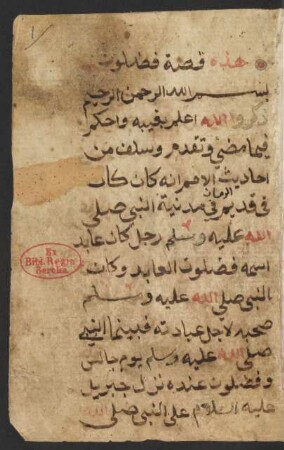 1
هذه قصة فضلون
بسم الله الرحمن الرحيم
ذكروا الله اعلم بغيبه واحكم
فيما مضي وتقدم وسلف من
احاديث الامم انه كان كان
فى قديم الزمان فى مدينة النبى صلى
الله عليه وسلم رجل كان عابد
اسمه فضلون العابد وكان
النبى صلى الله عليه وسلم
صحبه لاجل عبادته فبينما النبى
صلى الله عليه وسلم يوم جالس
وفضلون عنده نزل جبريل
عليه السلام على النبى صلى الله
Ex
Bibl. Regia
Berolin.